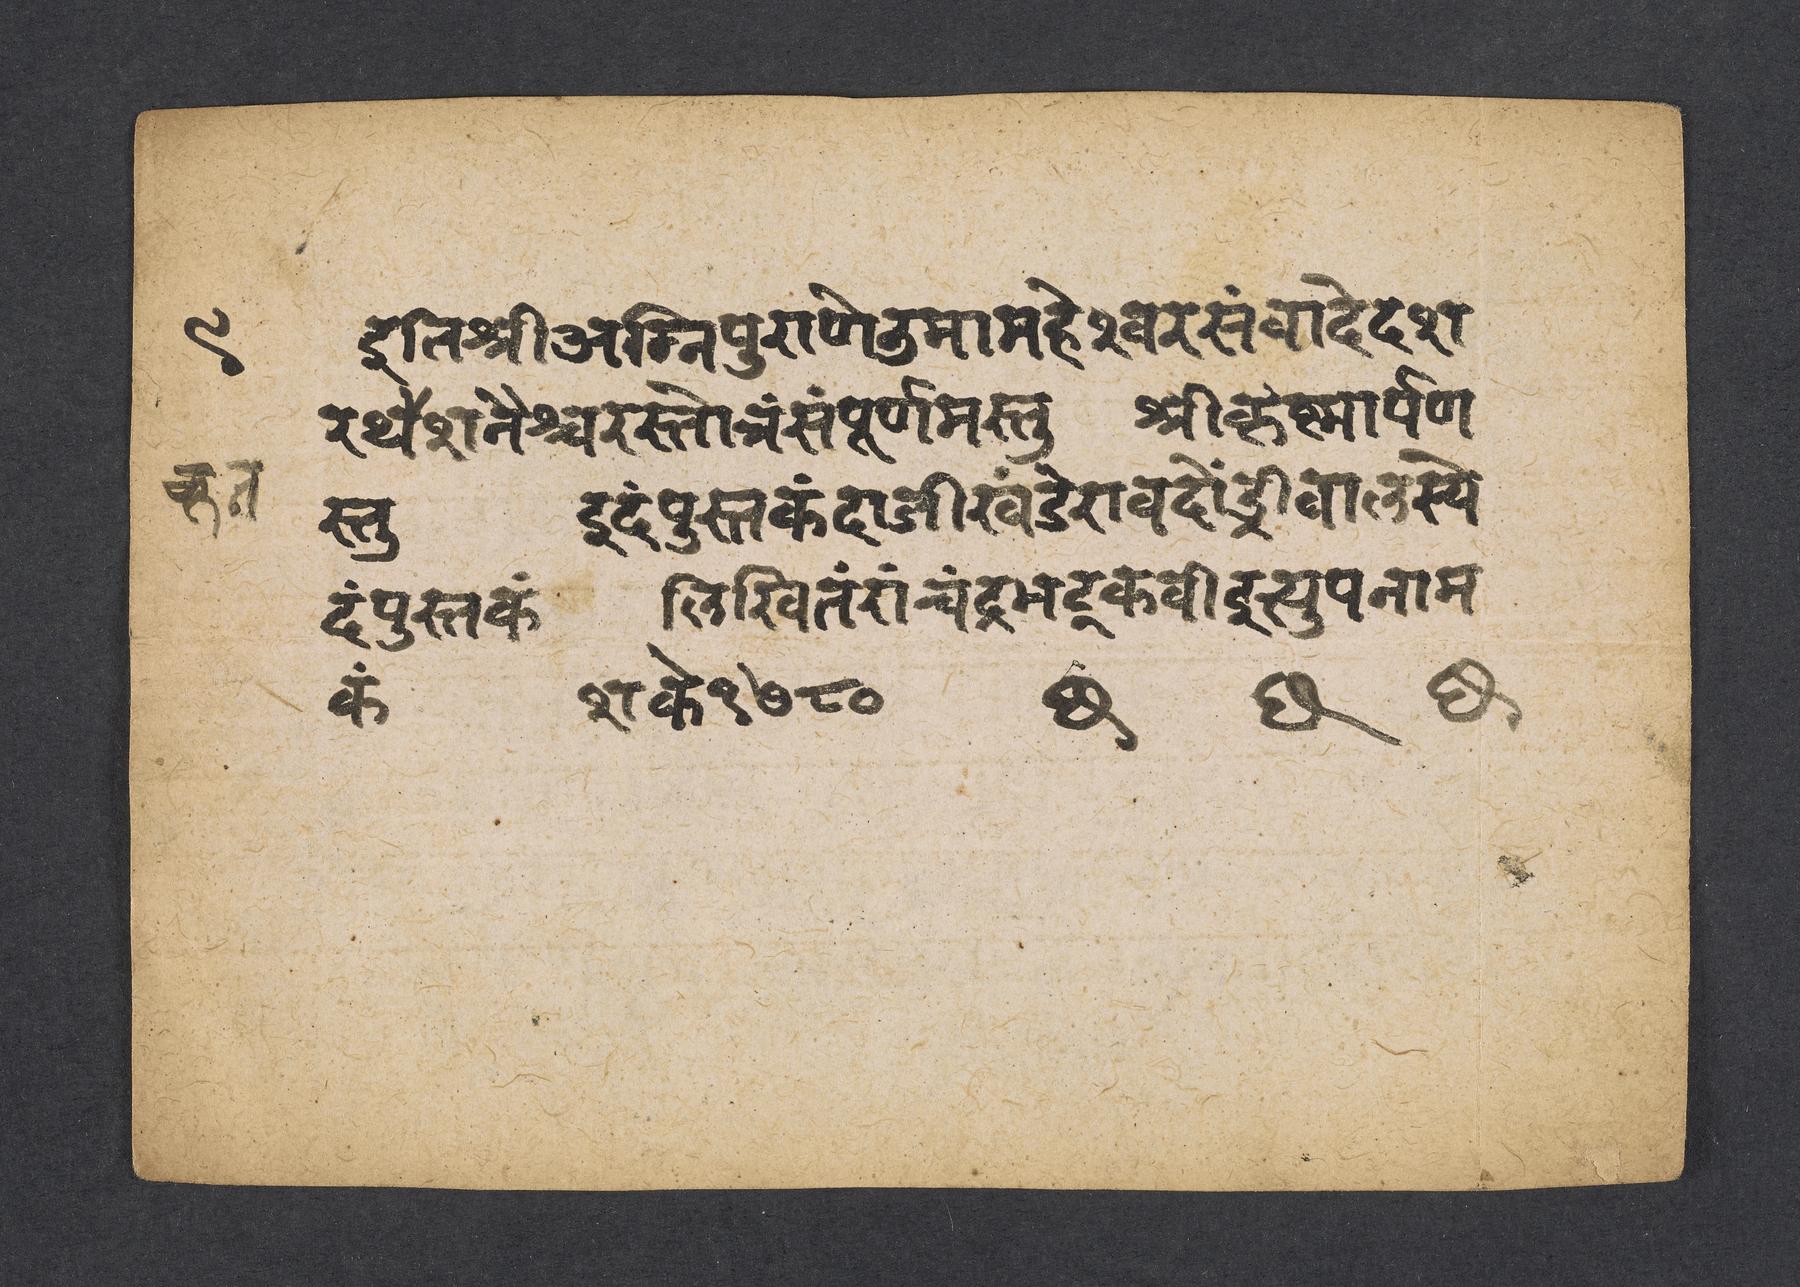 ९ इतिश्रीअग्निपुराणेउमामहेश्वरसंवादेदश
रथेशनैश्चरस्तोत्रंसंपूर्णमस्तु श्रीकृष्णार्पण
स्तु इदंपुस्तकंदाजीखंडेरावदोंद्रीवालस्ये
दंपुस्तकं लिखितंरांचंद्रभट्कवीइत्युपनाम
कं शके१७८० छ छ छ